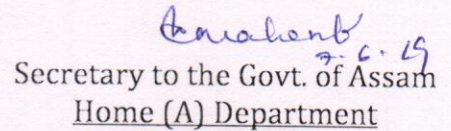 7.6.19
Secretary to the Govt. of Assam
Home (A) Department